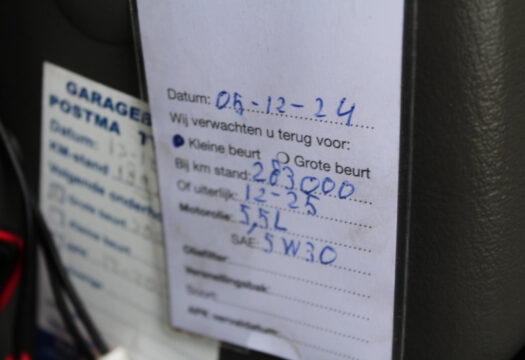 Datum: 05-12-24
Wij verwachten u terug voor:
Kleine beurt Grote beurt
Bij km stand: 283000
Of uiterlijk: 12-25
Motorolie: 5,5L
SAE: 5W30
Oliefilter:
Versnellingsbak:
Soort:
APK vervaldatum:
GARAGEB
POSTMA
Datum:
KM-stand
Volgende onderho
Grote beurt
Kleine beurt